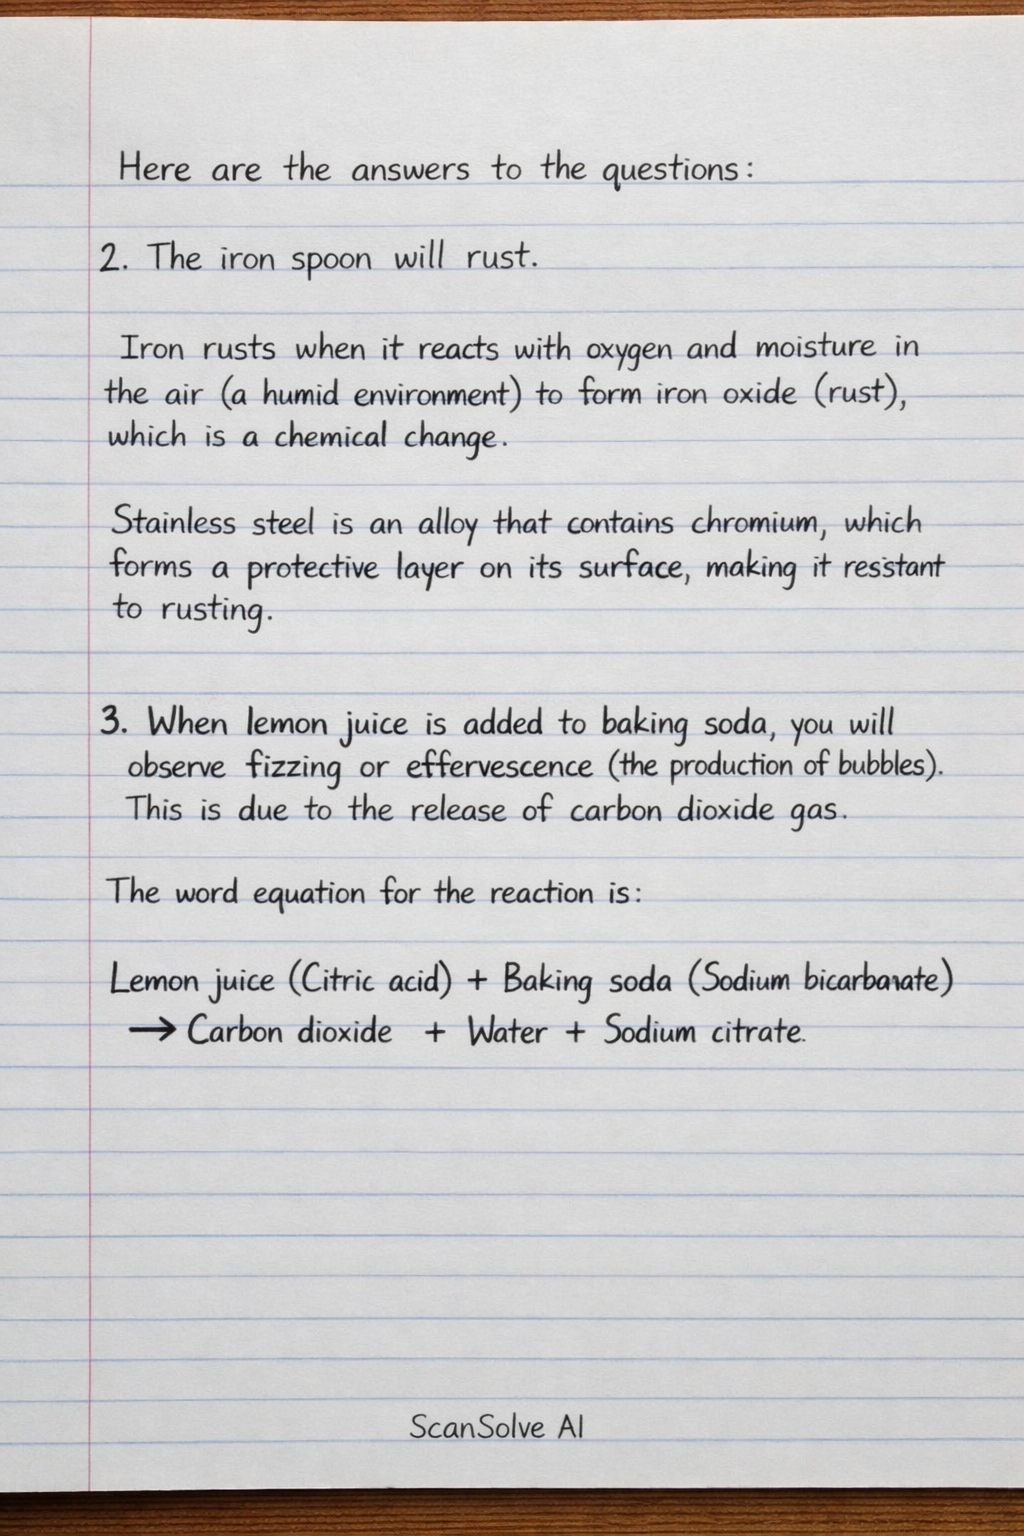 Here are the answers to the questions:
2. The iron spoon will rust.
Iron rusts when it reacts with oxygen and moisture in
the air (a humid environment) to form iron oxide (rust),
which is a chemical change.
Stainless steel is an alloy that contains chromium, which
forms a protective layer on its surface, making it resistant
to rusting.
3. When lemon juice is added to baking soda, you will
observe fizzing or effervescence (the production of bubbles).
This is due to the release of carbon dioxide gas.
The word equation for the reaction is:
Lemon juice (Citric acid) + Baking soda (Sodium bicarbonate)
→ Carbon dioxide + Water + Sodium citrate.
ScanSolve AI